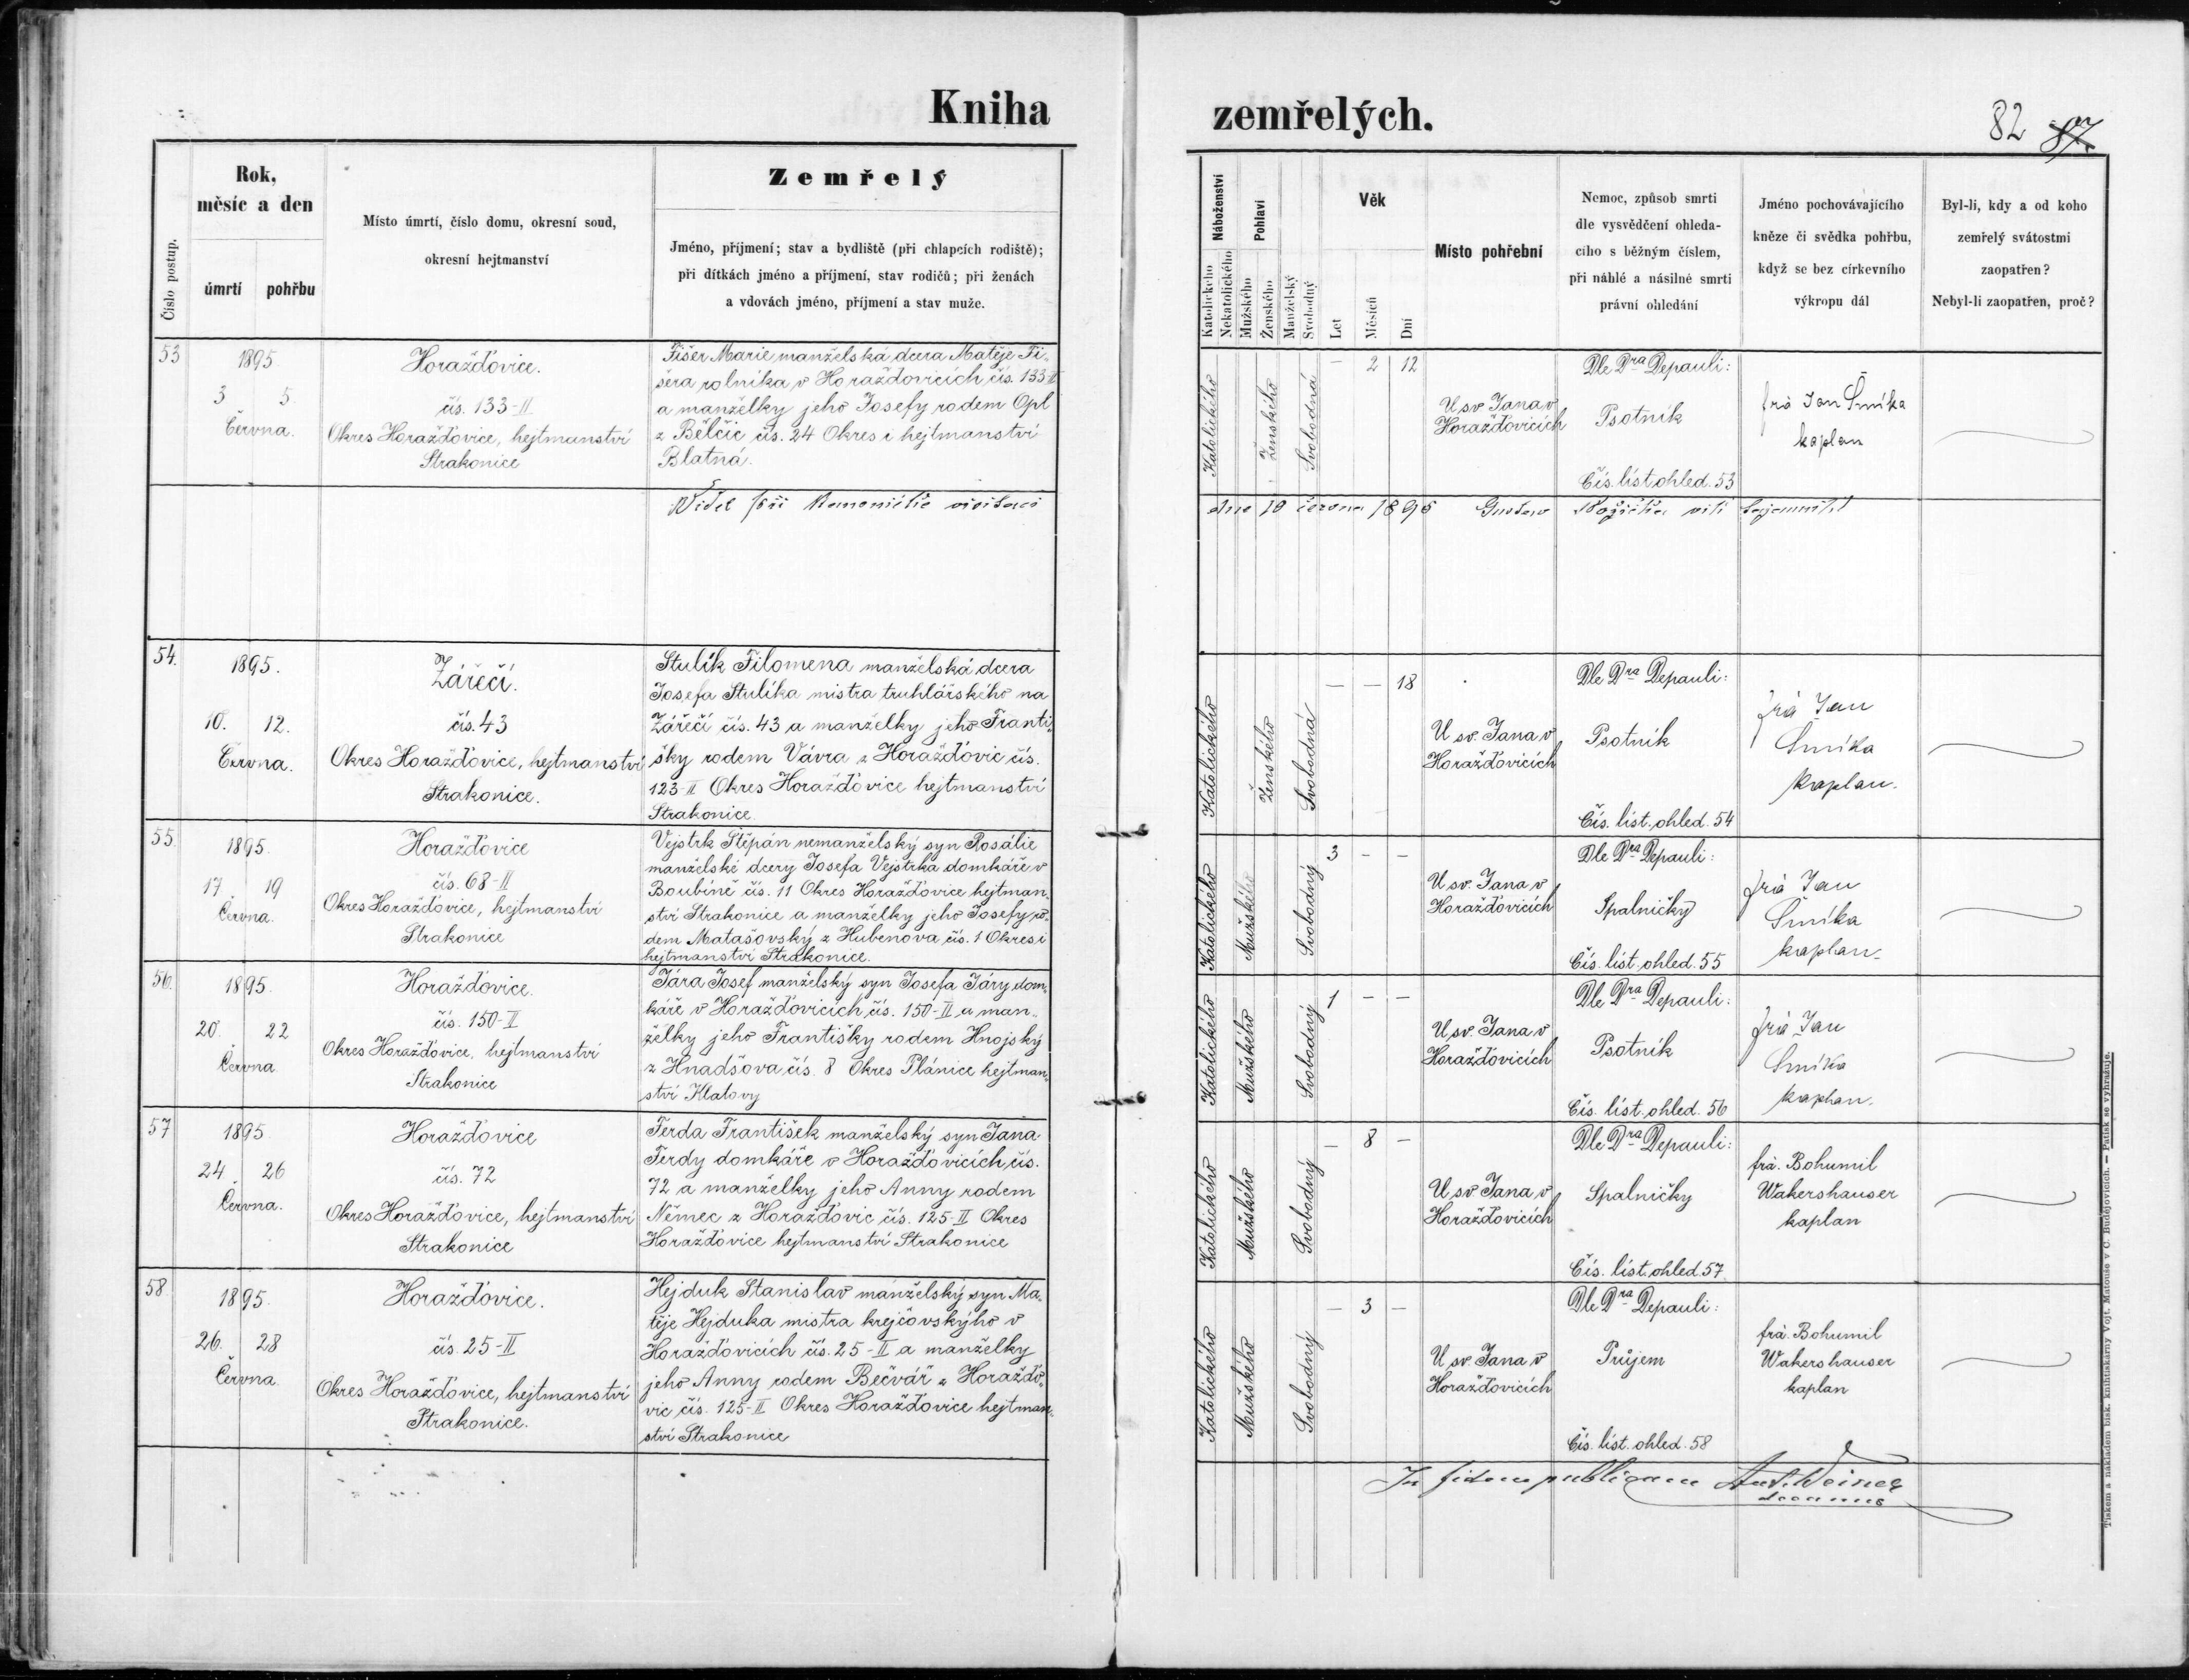 Kniha
zemřelých.
82 87.
Číslo postup.
Rok,
měsíc a den
úmrtí pohřbu
Místo úmrtí, číslo domu, okresní soud,
okresní hejtmanství
Zemřelý
Jméno, příjmení; stav a bydliště (při chlapcích rodiště);
při dítkách jméno a příjmení, stav rodičů; při ženách
a vdovách jméno, příjmení a stav muže.
Náboženství
Katolického
Nekatolického
Pohlaví
Mužského
Ženského
Manželský
Svobodný
Věk
Let
Měsíců
Dní
Místo pohřební
Nemoc, způsob smrti
dle vysvědčení ohleda-
cího s běžným číslem,
při náhlé a násilné smrti
právní ohledání
Jméno pochovávajícího
kněze či svědka pohřbu,
když se bez církevního
výkropu dál
Byl-li, kdy a od koho
zemřelý svátostmi
zaopatřen?
Nebyl-li zaopatřen, proč?
53
1895
3 5.
Června.
Horažďovice.
čís. 133-II
Okres Horažďovice, hejtmanství
Strakonice
Fišer Marie manželská dcera Matěje Fi-
šera rolníka v Horažďovicích čís. 133-II
a manželky jeho Josefy rodem Opl
z Bělčic čís. 24 Okres i hejtmanství
Blatná.
Katolického
Ženského
Svobodná
— 2 12
U sv. Jana v
Horažďovicích
Dle Dra Depauli:
Psotník
Čís. list ohled. 53
frà Jan Šmíka
kaplan
Viděl při kanonické visitaci
dne 19 června 1896 Gustav
54.
1895.
10. 12.
Června.
Zářečí.
čís. 43
Okres Horažďovice, hejtmanství
Strakonice.
Stulík Filomena manželská dcera
Josefa Stulíka mistra truhlářského na
Zářečí čís. 43 a manželky jeho Franti-
šky rodem Vávra z Horažďovic čís.
123-II Okres Horažďovice hejtmanství
Strakonice.
Katolického
Ženského
Svobodná
— — 18
U sv. Jana v
Horažďovicích
Dle Dra Depauli:
Psotník
Čís. list. ohled. 54
frà Jan
Šmíka
kaplan.
55.
1895.
17 19
Června.
Horažďovice
čís. 68-II
Okres Horažďovice, hejtmanství
Strakonice
Vejstrk Štěpán nemanželský syn Rosálie
manželské dcery Josefa Vejstrka domkáře v
Boubíně čís. 11 Okres Horažďovice hejtman-
ství Strakonice a manželky jeho Josefy ro-
dem Matašovský z Hubenova čís. 1 Okres i
hejtmanství Strakonice.
Katolického
Mužského
Svobodný
3 — —
U sv. Jana v
Horažďovicích
Dle Dra Depauli:
Spalničky
Čís. list. ohled. 55
frà Jan
Šmíka
kaplan.
56.
1895.
20. 22
Června
Horažďovice.
čís. 150-II
Okres Horažďovice, hejtmanství
Strakonice
Jára Josef manželský syn Josefa Járy dom-
káře v Horažďovicích čís. 150-II a man-
želky jeho Františky rodem Hnojský
z Hnadšova čís. 8 Okres Plánice hejtman-
ství Klatovy
Katolického
Mužského
Svobodný
1 — —
U sv. Jana v
Horažďovicích
Dle Dra Depauli:
Psotník
Čís. list. ohled. 56
frà Jan
Šmíka
kaplan.
57
1895.
24. 26
Června.
Horažďovice
čís. 72
Okres Horažďovice, hejtmanství
Strakonice
Ferda František manželský syn Jana
Ferdy domkáře v Horažďovicích čís.
72 a manželky jeho Anny rodem
Němec z Horažďovic čís. 125-II Okres
Horažďovice hejtmanství Strakonice
Katolického
Mužského
Svobodný
— 8 —
U sv. Jana v
Horažďovicích
Dle Dra Depauli:
Spalničky
Čís. list. ohled. 57
frà. Bohumil
Wakershauser
kaplan
58
1895.
26. 28
Června
Horažďovice.
čís. 25-II
Okres Horažďovice, hejtmanství
Strakonice.
Hejduk Stanislav manželský syn Ma-
těje Hejduka mistra krejčovskýho v
Horažďovicích čís. 25-II a manželky
jeho Anny rodem Bečvář z Horažďo-
vic čís. 125-II Okres Horažďovice hejtman-
ství Strakonice
Katolického
Mužského
Svobodný
— 3 —
U sv. Jana v
Horažďovicích
Dle Dra Depauli:
Průjem
Čís. list. ohled. 58
frà. Bohumil
Wakershauser
kaplan
In fidem publicam Ant. Weiner
decanus
Tiskem a nákladem bisk. knihtiskárny Vojt. Matouše v Č. Budějovicích. — Patisk se vyhražuje.